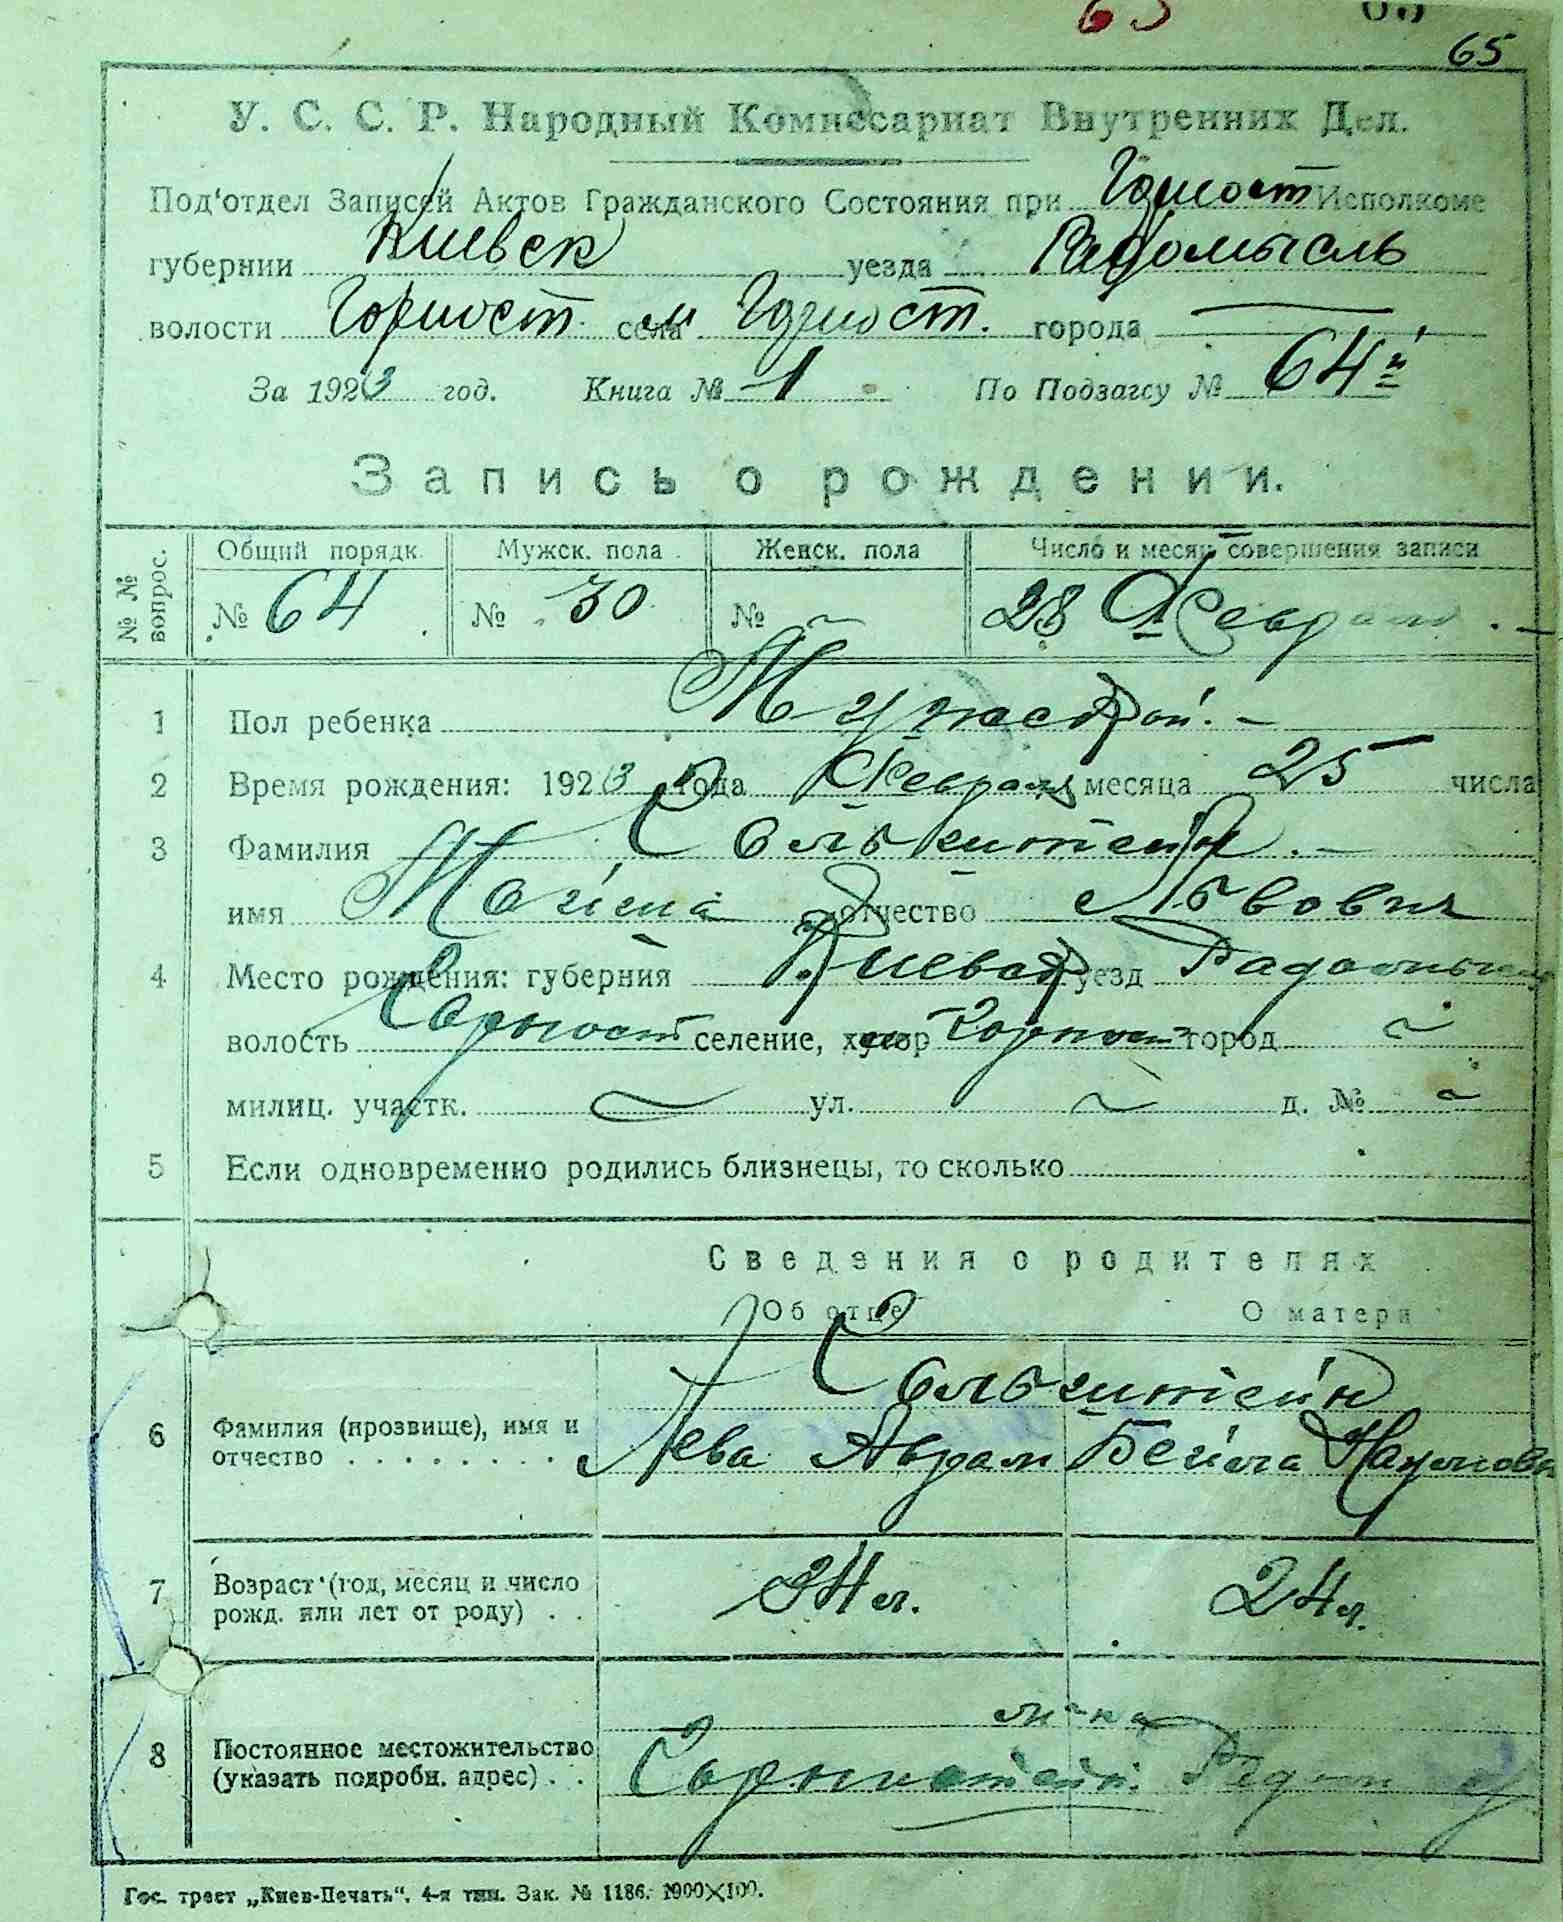 65
65
У. С. С. Р. Народный Комиссариат Внутренних Дел.
Под'отдел Записей Актов Гражданского Состояния при Горност Исполкоме
губернии Киевск уезда Радомысль
волости Горност. села м Горност. города —
За 1923 год. Книга № 1 По Подзагсу № 64й
Запись о рождении.
№ № вопрос. Общий порядк. Мужск. пола Женск. пола Число и месяц совершения записи
№ 64 № 30 № 28 Февраля
1 Пол ребенка Мужской. —
2 Время рождения: 1923 года Февраля месяца 25 числа
3 Фамилия Гольдштейн. —
имя отчество Львович
4 Место рождения: губерния Киевск уезд Радомысль
волость Горност селение, хутор Горност город
милиц. участк. ул. д. №
5 Если одновременно родились близнецы, то сколько
Сведения о родителях
Об отце О матери
6 Фамилия (прозвище), имя и Гольдштейн
отчество Лева Аврам Бейла Наумовна
7 Возраст (год, месяц и число
рожд. или лет от роду) 34 л. 24 л.
8 Постоянное местожительство
(указать подробн. адрес)
Гос. трест „Киев-Печать“. 4-я тип. Зак. № 1186. 1900×100.